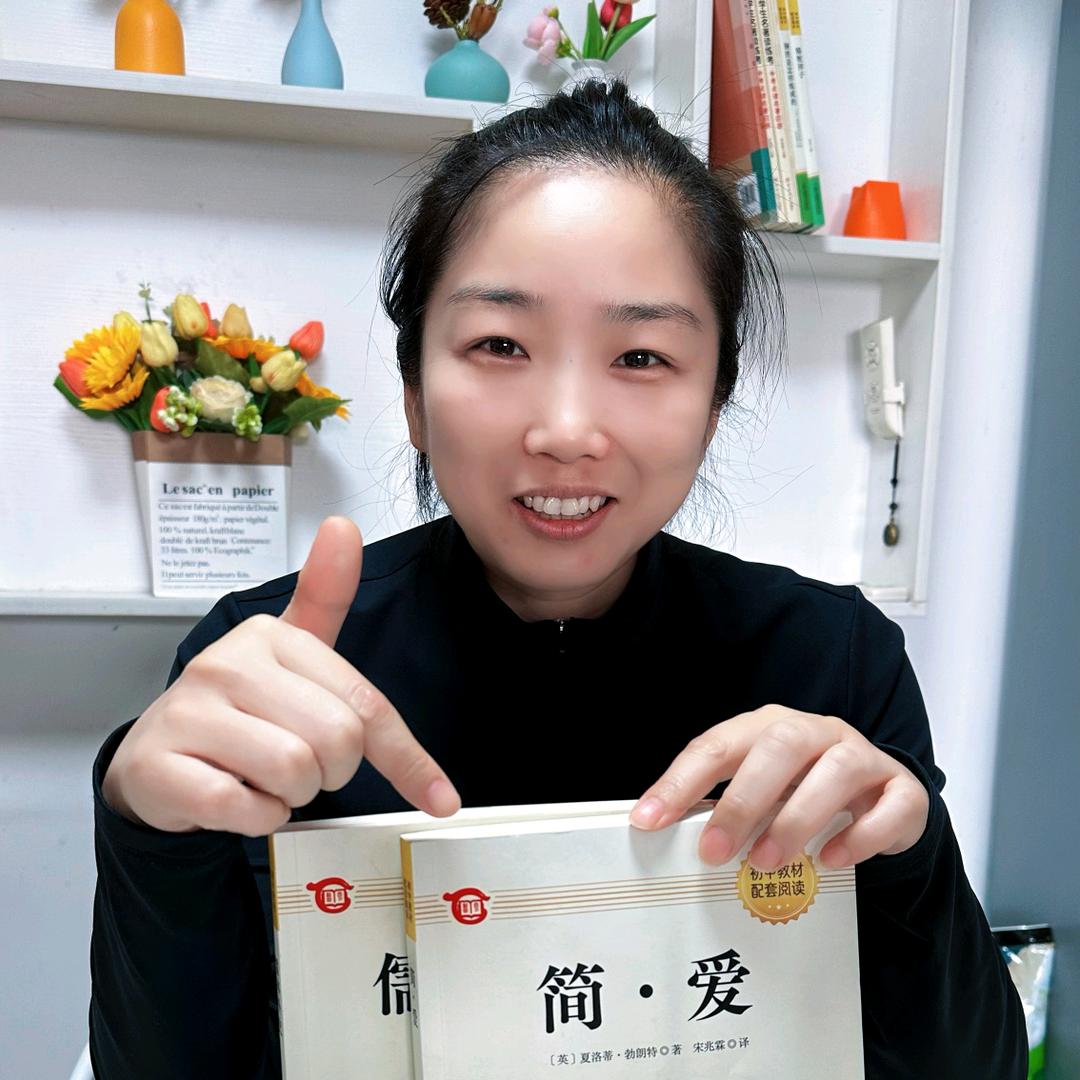 Le sac en papier
Ce sac est fabriqué à partir de Double
épaisseur 180g/m². papier végétal.
100 % naturel. kraft blanc
doublé de kraft brun. Contenance:
33 litres. 100 % Ecographik."
Ne le jetez pas.
Il peut servir plusieurs fois.
初中教材
配套阅读
儒
简·爱
［英］夏洛蒂·勃朗特◎著 宋兆霖◎译